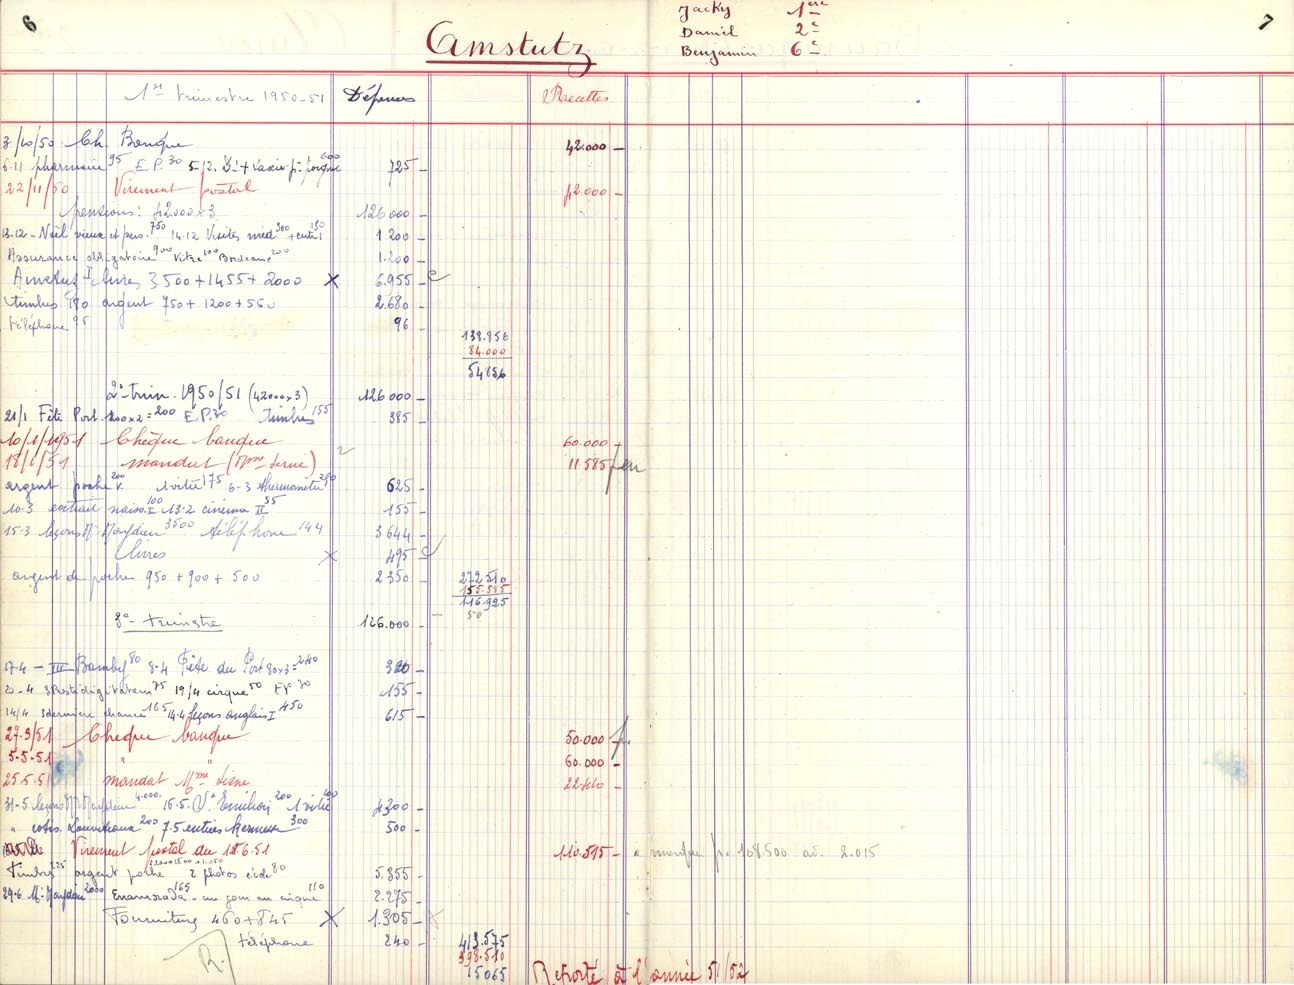 6
Amstutz
Jacky 1ère
Daniel 2e
Benjamin 6e
7
1er trimestre 1950-51 Dépenses Recettes
3/10/50 Ch. Banque 42.000 –
6.11 pharmacie 95 E.P. 30 5/2. Dt + vaccin p. 600 725 –
22/11/50 Virement postal 42.000 –
pensions: 42000 x 3 126000 –
13.12 – Noël vieux et pris. 750 14.12 Visites méd. 300 + 150 1200 –
Assurance obligatoire 900 Vitre 100 Bordeaux 200 1.200 –
Amstutz I livres 3500 + 1455 + 2000 X 6.955 –
timbres 180 argent 750 + 1200 + 550 2.680 –
téléphone 95 96 –
138.956
84.000
54956
2e trim. 1950/51 (42000 x 3) 126000 –
21/1 Fête Port. 100x2 = 200 E.P. 30 timbres 155 385 –
10/1/1951 Chèque banque 60.000 –
18/1/51 mandat (Mme) 11.585
argent poche 200 1 visite 175 6-3 thermomètre 250 625 –
10-3 extrait naiss. I 100 13-2 cinéma II 55 155 –
15-3 leçons Mr 3500 téléphone 144 3644 –
livres X 495 –
argent de poche 950 + 900 + 500 2350 –
272510
155.585
116.925
50
3e trimestre 126.000 –
17.4 – III Bamby 80 8-4 Fête du Port 80x3 = 240 320 –
20-4 3 Prestidigitateurs 75 19/4 cirque 50 EP 30 155 –
14/4 3 dernière chance 165 14.4 leçons anglais I 450 615 –
27.3/51 Chèque banque 50.000 –
5-5-51 " " 60.000 –
25.5.51 mandat Mme 22440 –
31-5 leçons Mr 4.000. 16-5. Vt Emilion 200 1 visite 100 4300 –
" cotis. Louveteaux 200 7.5 entrées kermesse 300 500 –
Virement postal du 18.6.51 110.515 – manque p. 108.500 av. 2.015
Timbres 225 argent poche 2 photos école 80 5.355 –
29-6 Mr 2000 Enamorada 165 – au cirque 110 2.275 –
Fournitures 460 + 845 X 1.305 –
téléphone 240 –
R.
413.575
398.510
15065
Reporté à l'année 51/52